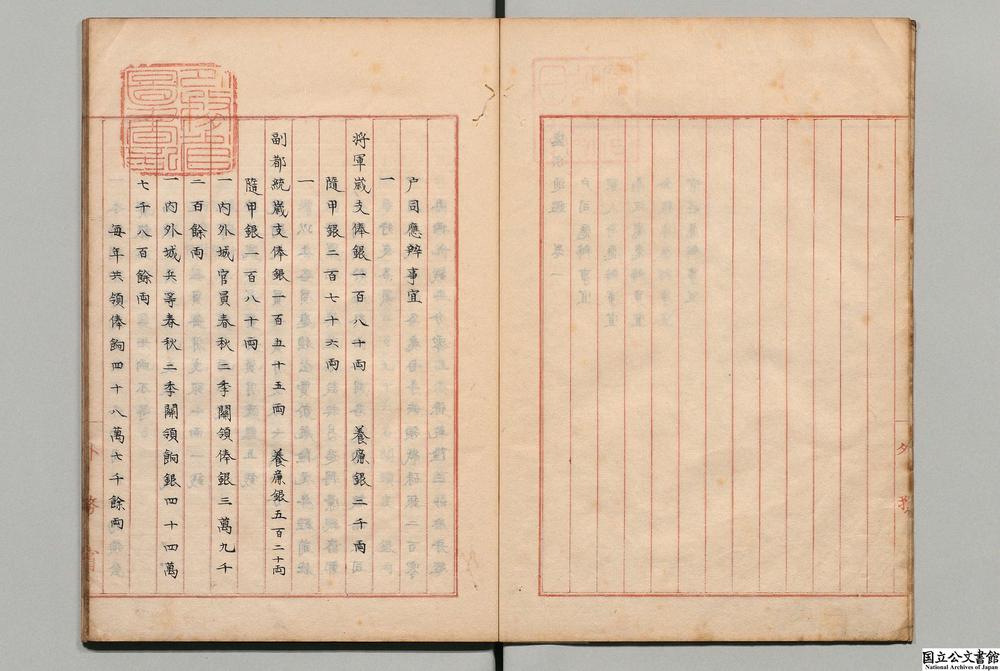 户司應辦事宜
一
将軍歲支俸銀一百八十両　養廉銀二千両
隨甲銀二百七十六両
一
副都統歲支俸銀一百五十五両　養廉銀五百二十両
隨甲銀一百八十両
一内外城官員春秋二季關領俸銀三萬九千
二百餘両
一内外城兵等春秋二季關領餉銀四十四萬
七千八百餘両
每年共領俸餉四十八萬七千餘両
外務省
国立公文書館
National Archives of Japan